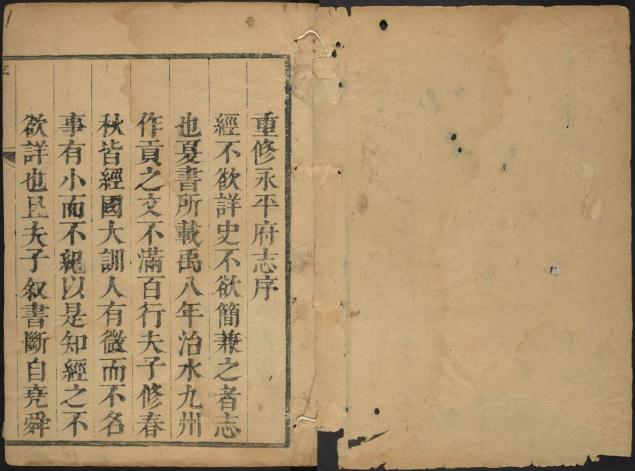 重修永平府志序
經不欲詳史不欲簡兼之者志
也夏書所載禹八年治水九州
作貢之文不滿百行夫子修春
秋皆經國大訓人有微而不名
事有小而不紀以是知經之不
欲詳也且夫子叙書斷自堯舜